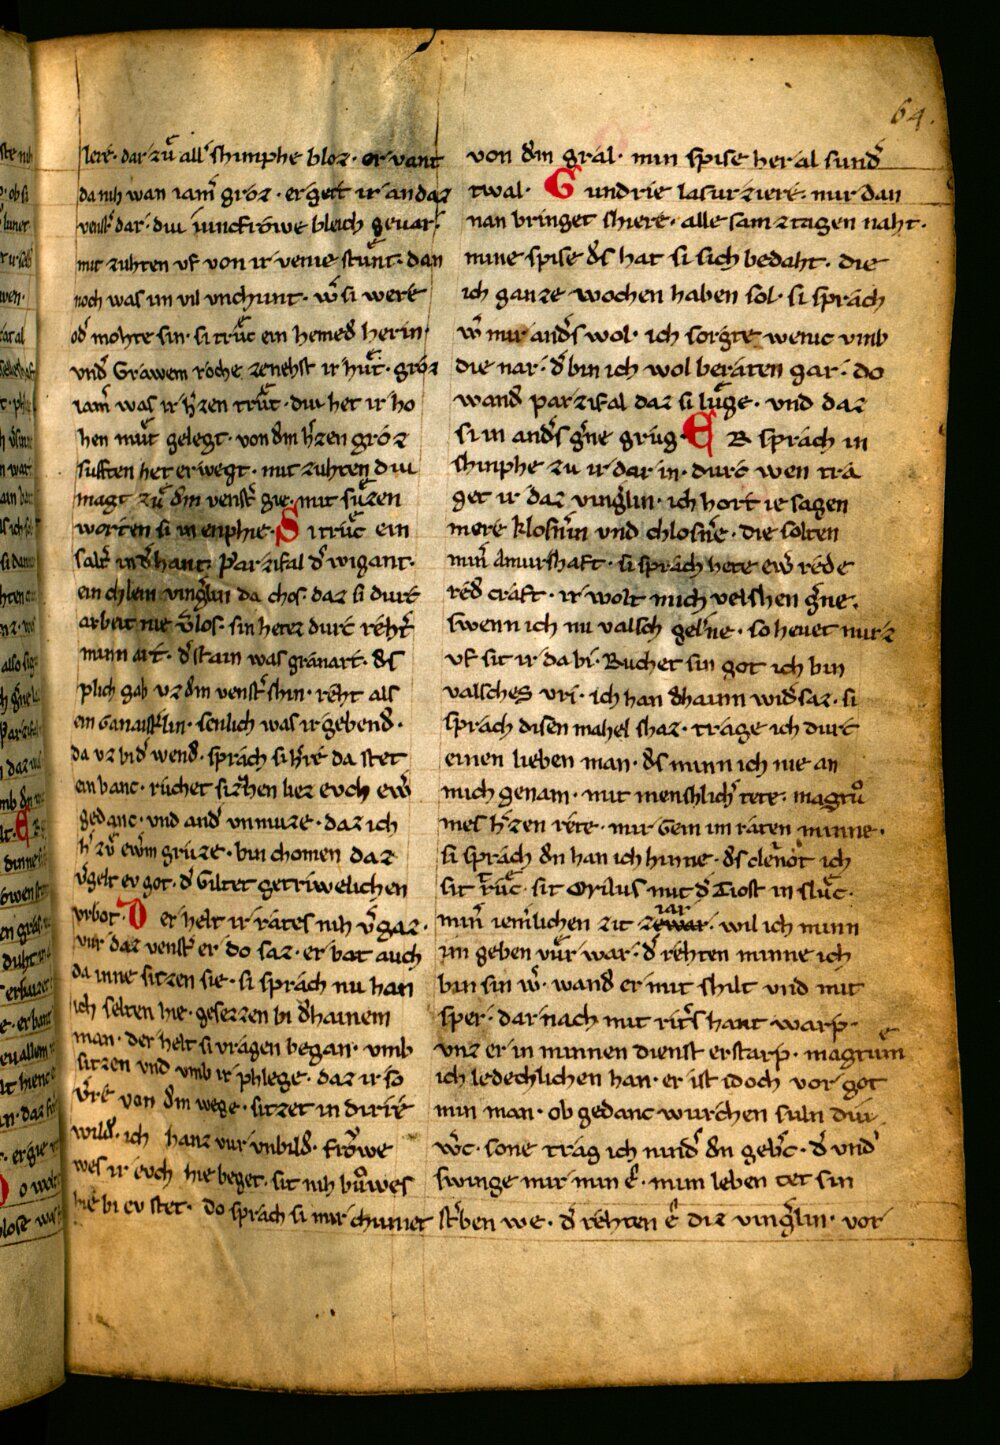 64.
lere· dar zů all' shimphe bloz· er vant
da nih wan iam̄ groz· er get ir an daz
venstˢ dar· diu iuncfrowe bleich gevar·
mit zuhten vf von ir venie stůnt· dan
noch was im vil vnchunt· w̄ si were
od' mohte sin· si trůc ein hemed herin·
vnd' Grawem roche zenehst ir hůt· groz
iam̄ was ir h'zen trůt· diu het ir ho
hen můt gelegt· von dem h'zen groz
sufften het erwegt· mit zuhten diu
magt zů dem venstˢ gie· mit sůzen
worten si in enphie· Si trůc ein
saltˢ in d' hant· Parzifal d' wigant·
ein chlein vingˢlin da chos· daz si durc
arbeit nie v'los· sin hetez durc rehtˢ
minn art· d' stain was granart· des
plich gab vz dem venstˢ shin· reht als
ein Ganaistˢlin· senlich was ir gebend·
da vz bi d' wend· sprach si h're da stet
ein banc· růchet sizhen liez evch ew̄
gedanc· vnd and' vnmuze· daz ich
h' zů ew̄m grůze· bin chomen daz
v'gelt ev got· d' Giltet getriwelichen
vrbot· Der helt ir rates nih v'gaz·
vur daz venstˢ er do saz· er bat auch
da inne sitzen sie· si sprach nu han
ich selten hie· gesezzen bi dhainem
man· der helt si vragen began· vmb
sitzen vnd vmb ir phlege· daz ir so
v're von dem wege· sitzet in dirre
wild· ich hanz vur vnbild· frowe
wes ir evch hie beget· sit nih bůwes
hie bi ev stet· do sprach si mir chumet
von dem gral· min spise her al sund'
twal· Gundrie lasurziere· mir dan
nan bringet shiere· alle samztagen naht·
mine spise des hat si sich bedaht· die
ich ganze wochen haben sol· si sprach
w' mir and's wol· ich sorgte wenic vmb
die nar· d' bin ich wol beraten gar· do
wand parzifal daz si luge· vnd daz
si in and's g'ne grug· ER sprach in
shimphe zu ir dar in· durc wen tra
get ir daz ving'lin· ich hort ie sagen
mere klosn'in vnd chlosn'e· die solten
min̄ Amurshaft· si sprach hete ew' rede
red craft· ir wolt mich velshen g'ne·
swenn ich nu valsch gel'ne· so hevet mirz
vf sit ir da bi· Ruchet sin got ich bin
valsches vri· ich han dhainn wid'saz· si
sprach disen mahel shaz· trage ich durc
einen lieben man· des minn ich nie an
mich genam· mit menshlich' tete· magtů
mes h'zen rete· mir Gein im raten minne·
si sprach den han ich hinne· des clenot ich
sit trůc· sit Orilus mit d' Tiost in slůc·
min̄ iem'lichen zit iar· wil ich minn
im geben vur war· d' rehten minne ich
bin sin w'· wand er mit shilt vnd mit
sper· dar nach mit rit's hant warp·
vnz er in minnen dienst erstarp· magtům
ich ledechlichen han· er ist idoch vor got
min man· ob gedanc wurchen suln diu
w'c· sone trag ich nind' den geb'c· d' vnd'
swinge mir min e'· minn leben tet sin
st'ben we· d' rehten e' diz ving'lin· vor